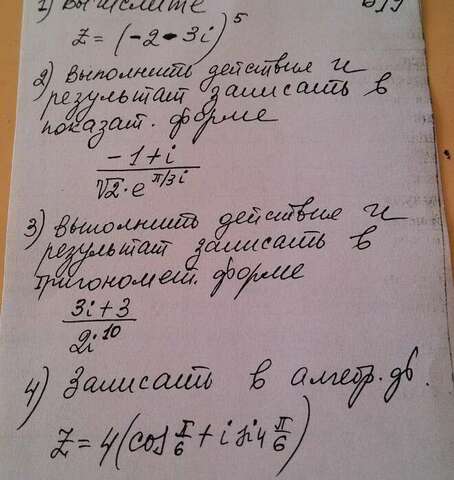 1) Вычислите
z = (-2-3i)^5
2) Выполнить действие и
результат записать в
показат. форме
\frac{-1+i}{\sqrt{2} \cdot e^{\pi/3 i}}
3) Выполнить действие и
результат записать в
тригономет. форме
\frac{3i+3}{2i^{10}}
4) Записать в алгебр. ф.
z = 4(cos \frac{\pi}{6} + i sin \frac{\pi}{6})